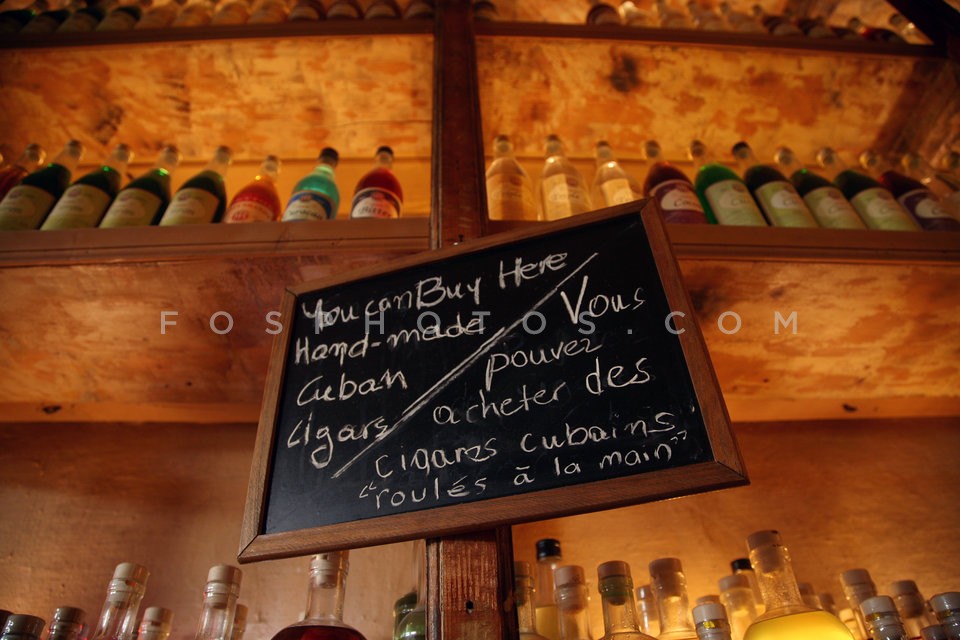 You can Buy Here
Hand-made
Cuban
Cigars
Vous
pouvez
acheter des
cigares cubains
"roulés à la main"
FOSPHOTOS.COM